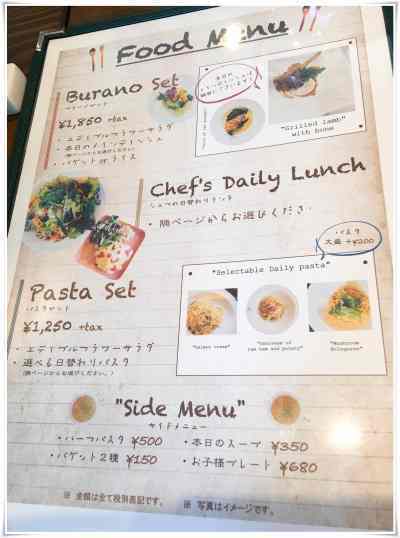 Food Menu
Burano Set
ブラーノセット
¥1,850 +tax
・エディブルフラワーサラダ
・本日のメインディッシュ
(隣ページからお選びください)
・バゲット or ライス
"Grilled lamb"
with bone
Chef's Daily Lunch
シェフの日替わりランチ
・隣ページからお選びくださ.
パスタ
大盛 +¥200
"Selectable Daily pasta"
Pasta Set
パスタセット
¥1,250 +tax
・エディブルフラワーサラダ
・選べる日替わりパスタ
(隣ページからお選びください。)
raw ham and potato"
"Mushroom
Bolognese"
"Side Menu"
サイドメニュー
・ハーフパスタ ¥500
・本日のスープ ¥350
・バゲット2種 ¥150
・お子様プレート ¥680
※ 金額は全て税別表記です。 ※ 写真はイメージです。